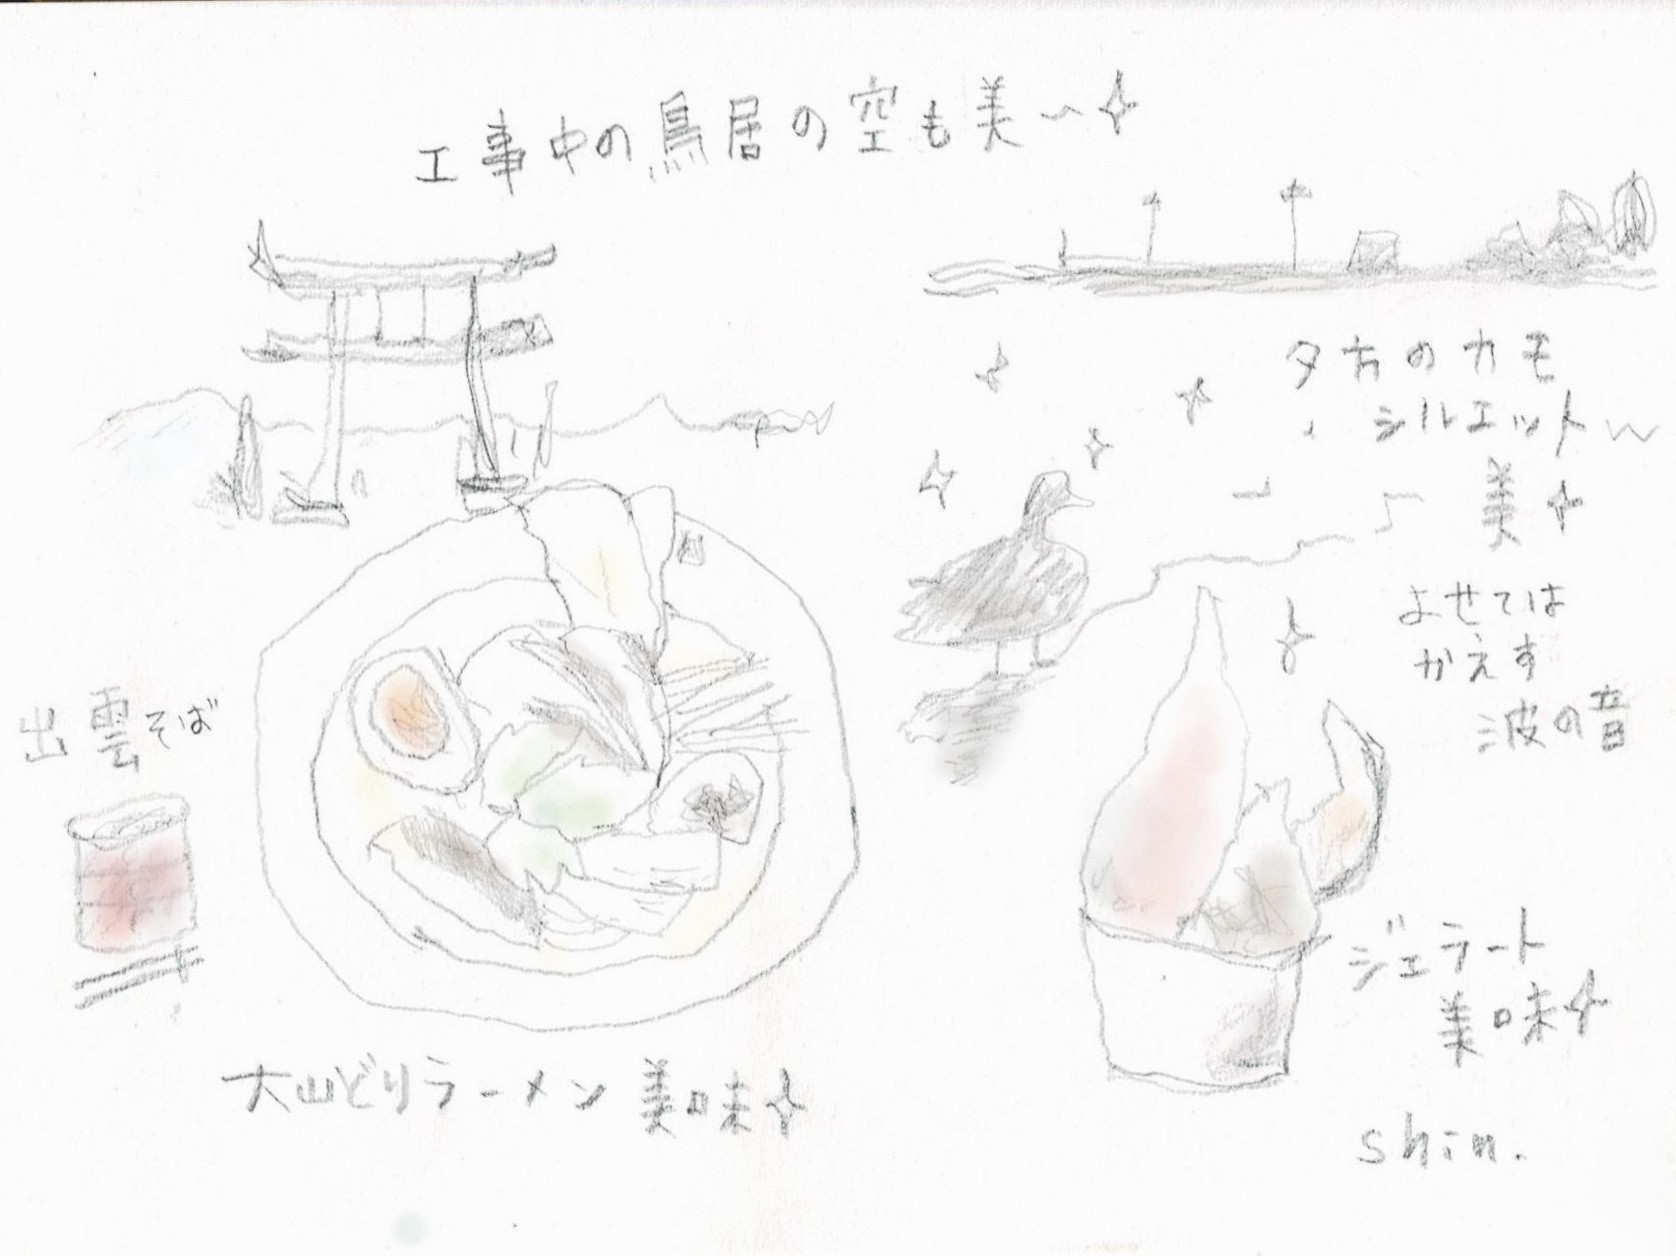 工事中の鳥居の空も美〜
夕方のカモ
シルエット〜
美
よせては
かえす
波の音
出雲そば
ジェラート
美味
大山どりラーメン 美味
shin.